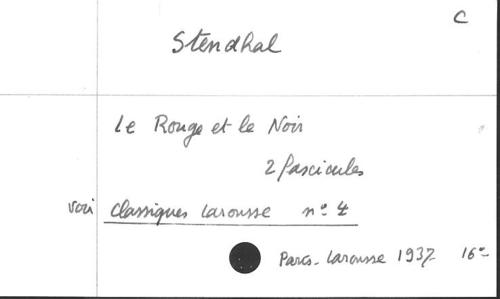 C
Stendhal
Le Rouge et le Noir
2 fascicules
voir Classiques Larousse nº 4
Paris - Larousse 1937 16º